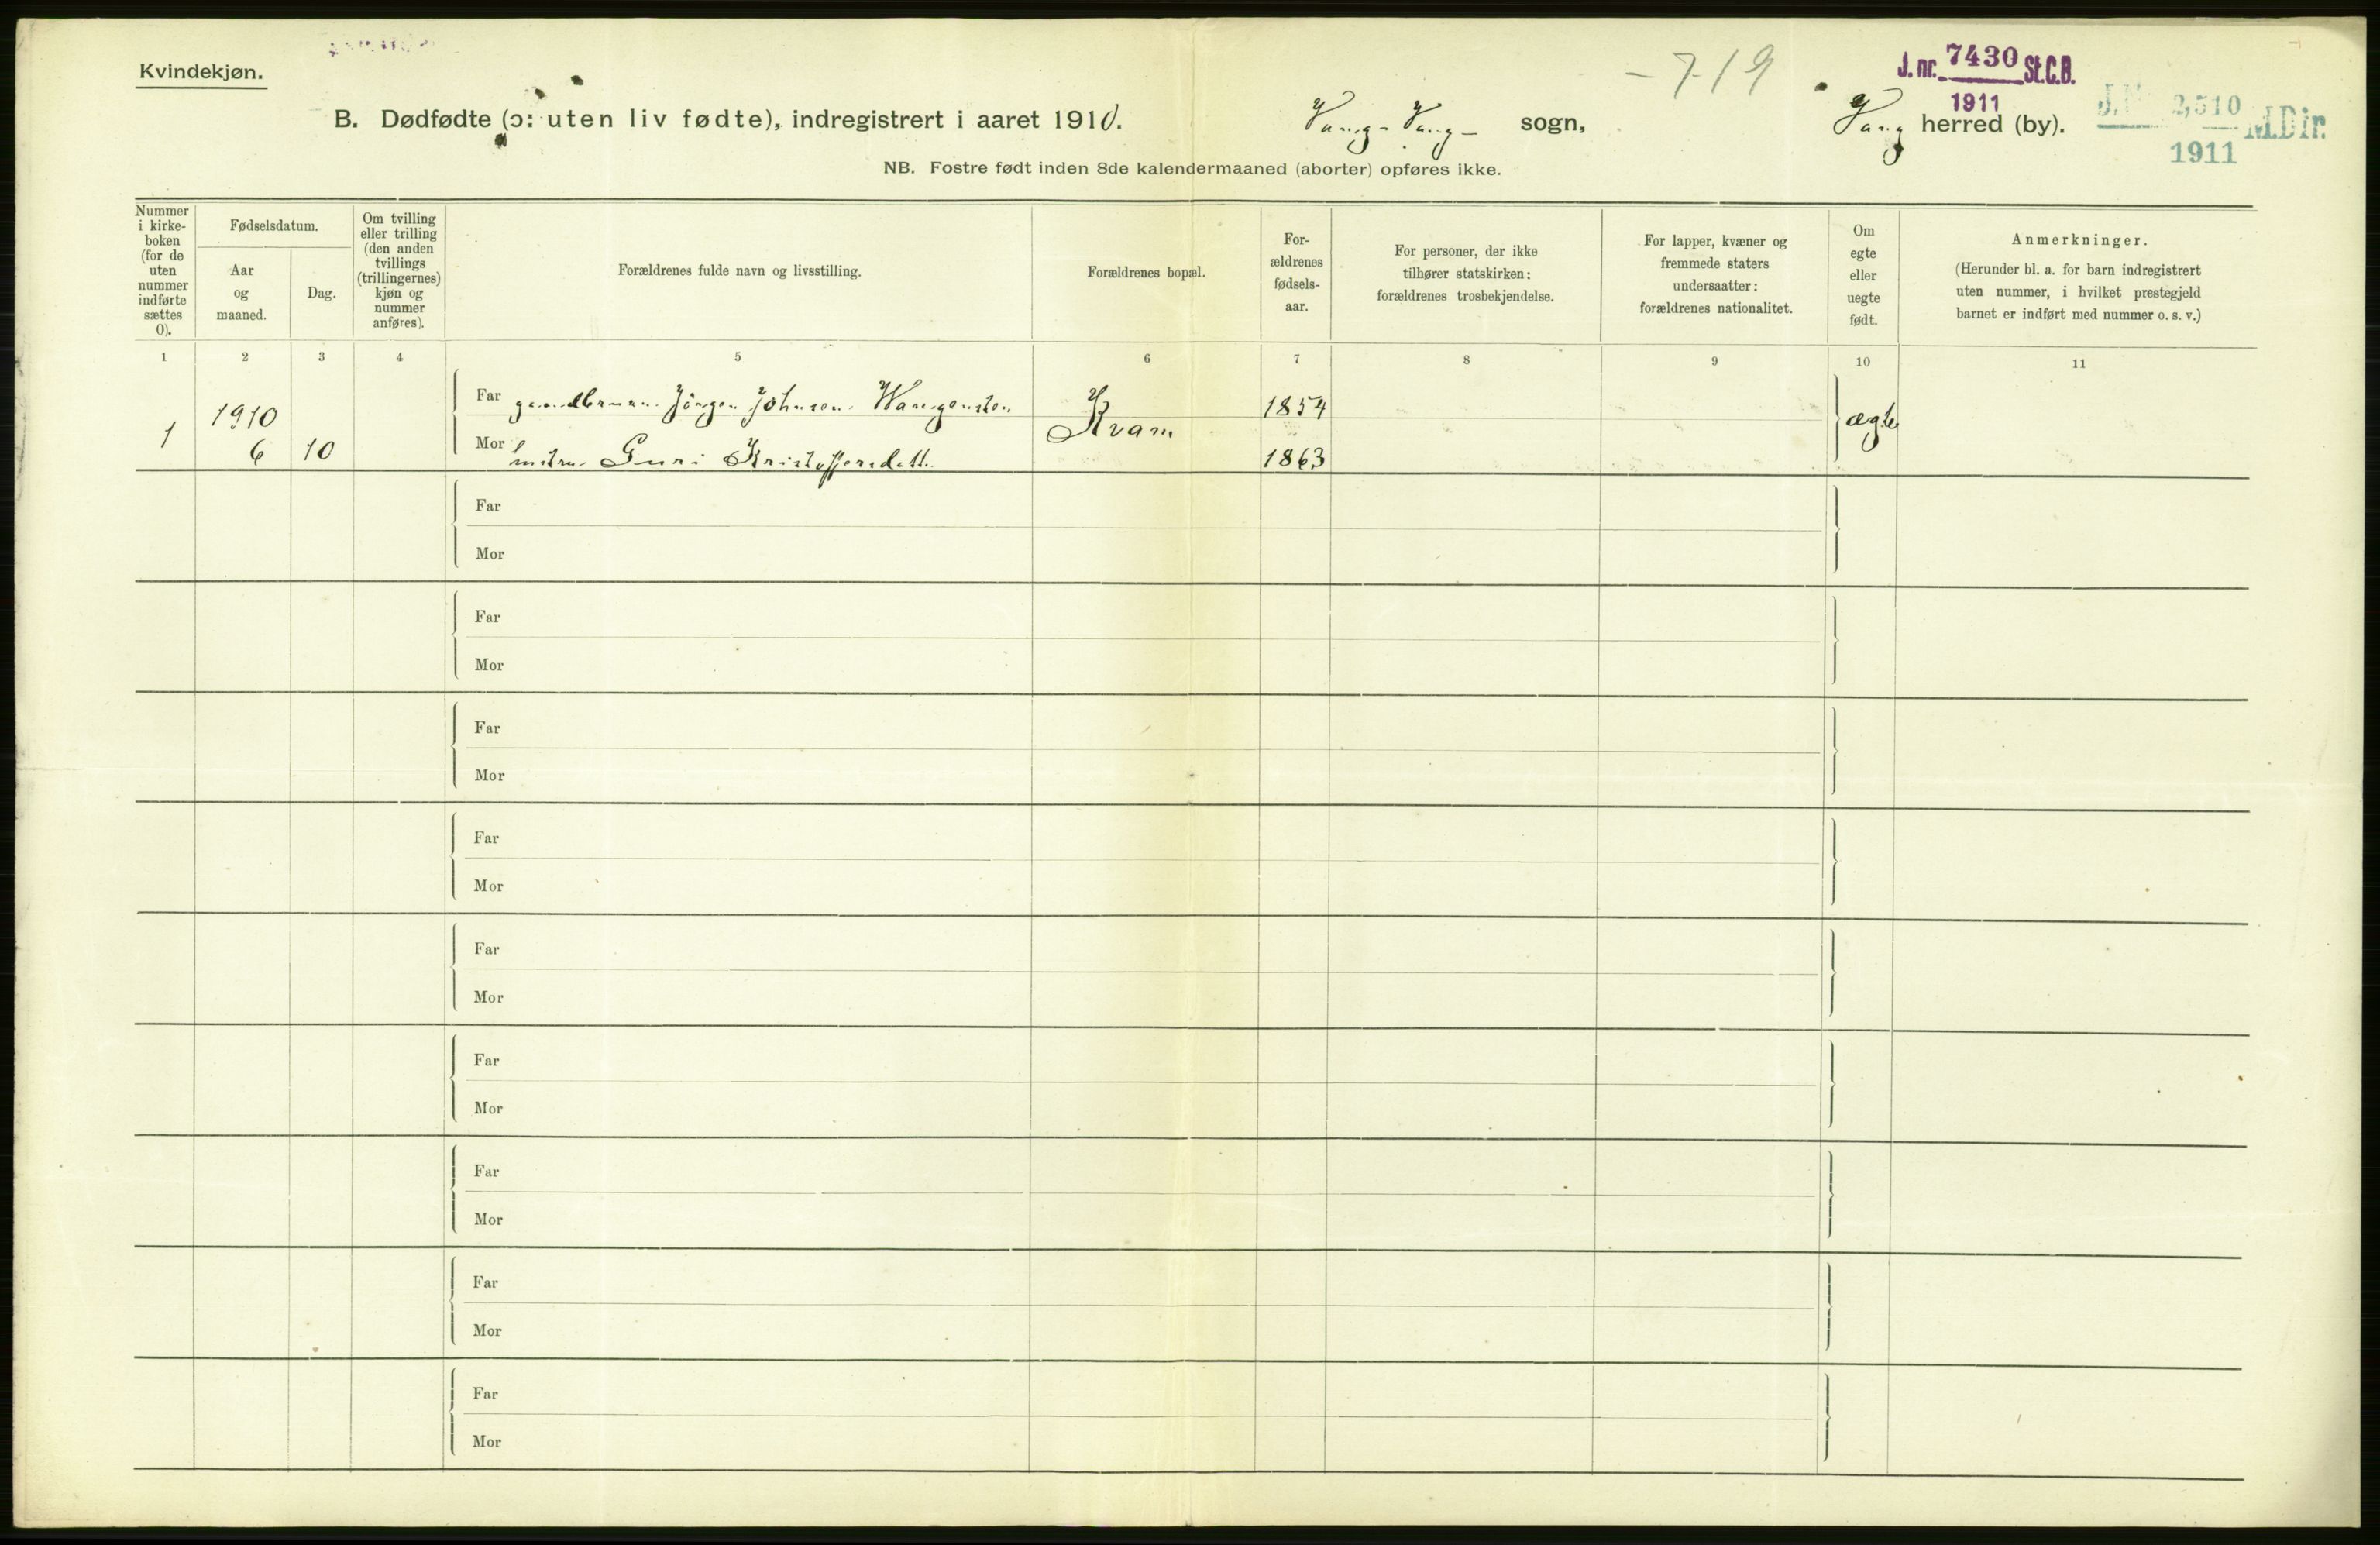 Kvindekjøn.
- 719
J. nr. 7430 St.C.B.
1911
B. Dødfødte (ɔ: uten liv fødte), indregistrert i aaret 1910.
Vang - Vang - sogn,
Vang herred (by).
J.N 2,510 M.Dir.
1911
NB. Fostre født inden 8de kalendermaaned (aborter) opføres ikke.
Nummer
i kirke-
boken
(for de
uten
nummer
indførte
sættes
0).
Fødselsdatum.
Aar
og
maaned.
Dag.
Om tvilling
eller trilling
(den anden
tvillings
(trillingernes)
kjøn og
nummer
anføres).
Forældrenes fulde navn og livsstilling.
Forældrenes bopæl.
For-
ældrenes
fødsels-
aar.
For personer, der ikke
tilhører statskirken:
forældrenes trosbekjendelse.
For lapper, kvæner og
fremmede staters
undersaatter:
forældrenes nationalitet.
Om
egte
eller
uegte
født.
Anmerkninger.
(Herunder bl. a. for barn indregistrert
uten nummer, i hvilket prestegjeld
barnet er indført med nummer o. s. v.)
1 2 3 4 5 6 7 8 9 10 11
1
1910
6
10
Far gaardbruker Jörgen Johnsen Wangensten
Mor hustru Guri Kristoffersdatt.
Kvam
1854
1863
ægte
Far
Mor
Far
Mor
Far
Mor
Far
Mor
Far
Mor
Far
Mor
Far
Mor
Far
Mor
Far
Mor